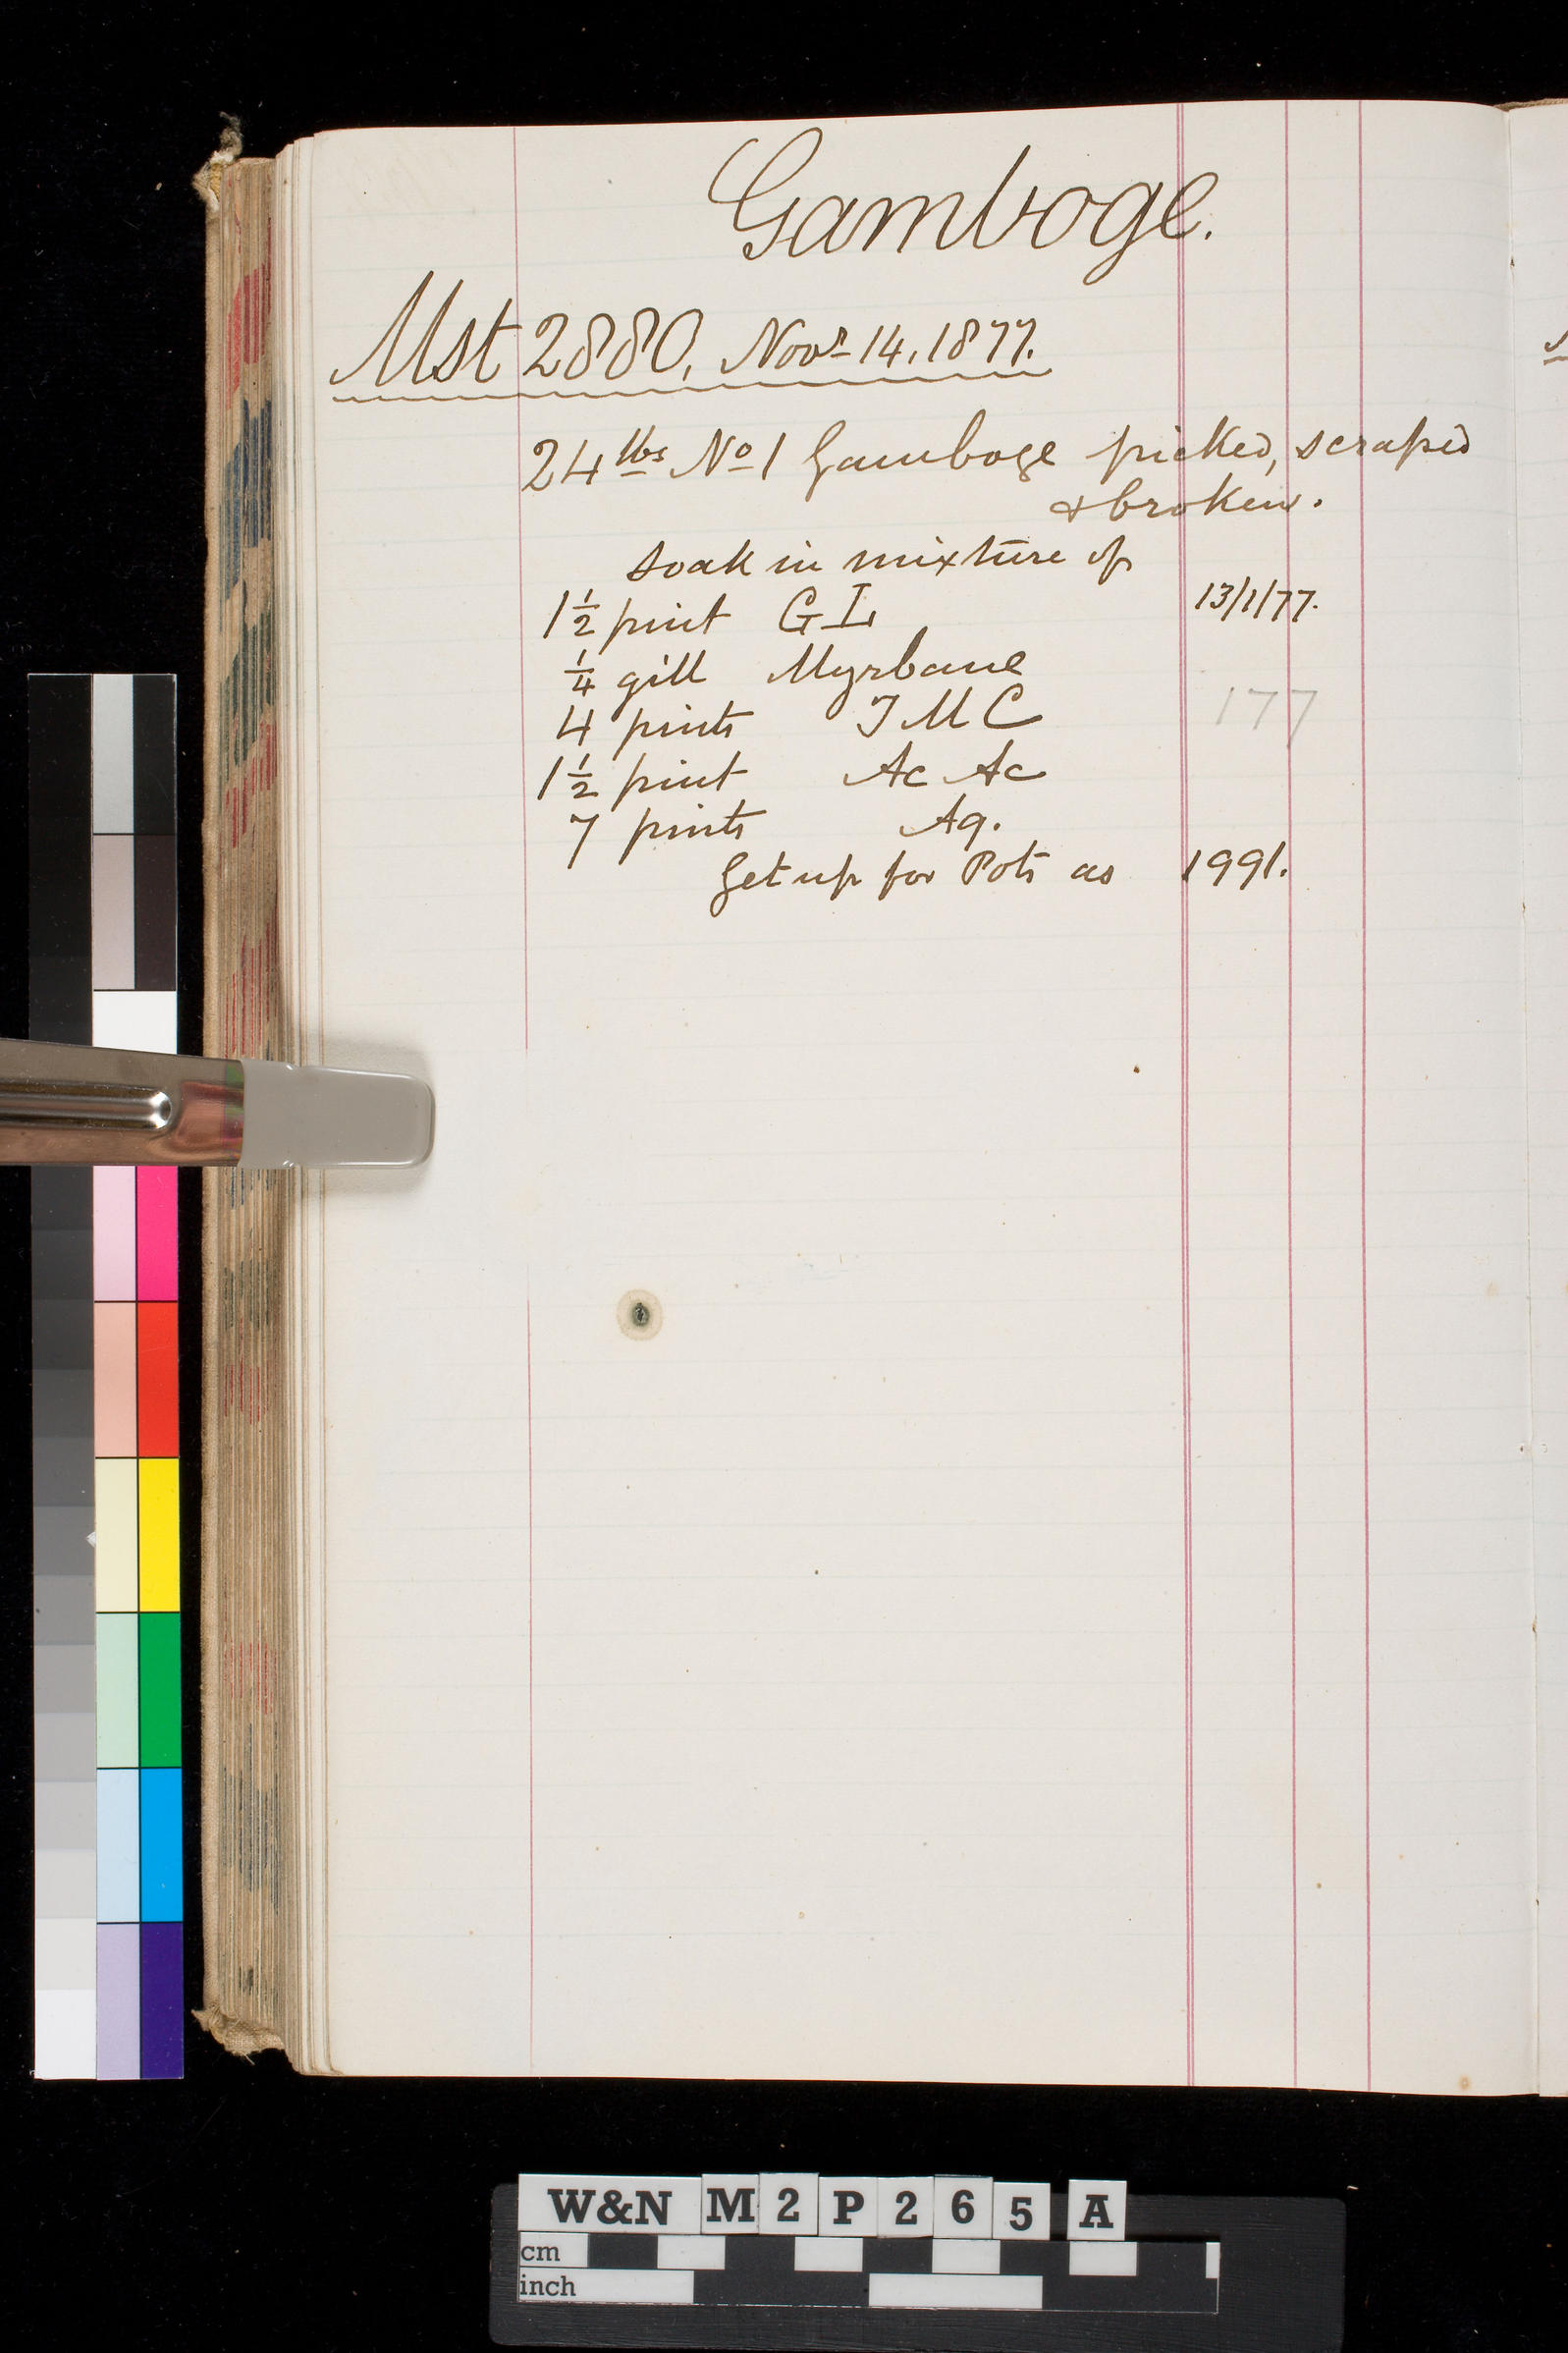 Gamboge.
Mst 2880. Novr 14. 1877.
24 lbs No 1 Gamboge picked, scraped
& broken.
soak in mixture of
1½ pint G L 13/1/77.
¼ gill Myrbane
4 pints J M C 177
1½ pint Ac Ac
7 pints Aq.
Get up for Pots as 1991.
W&N M 2 P 2 6 5 A
cm
inch